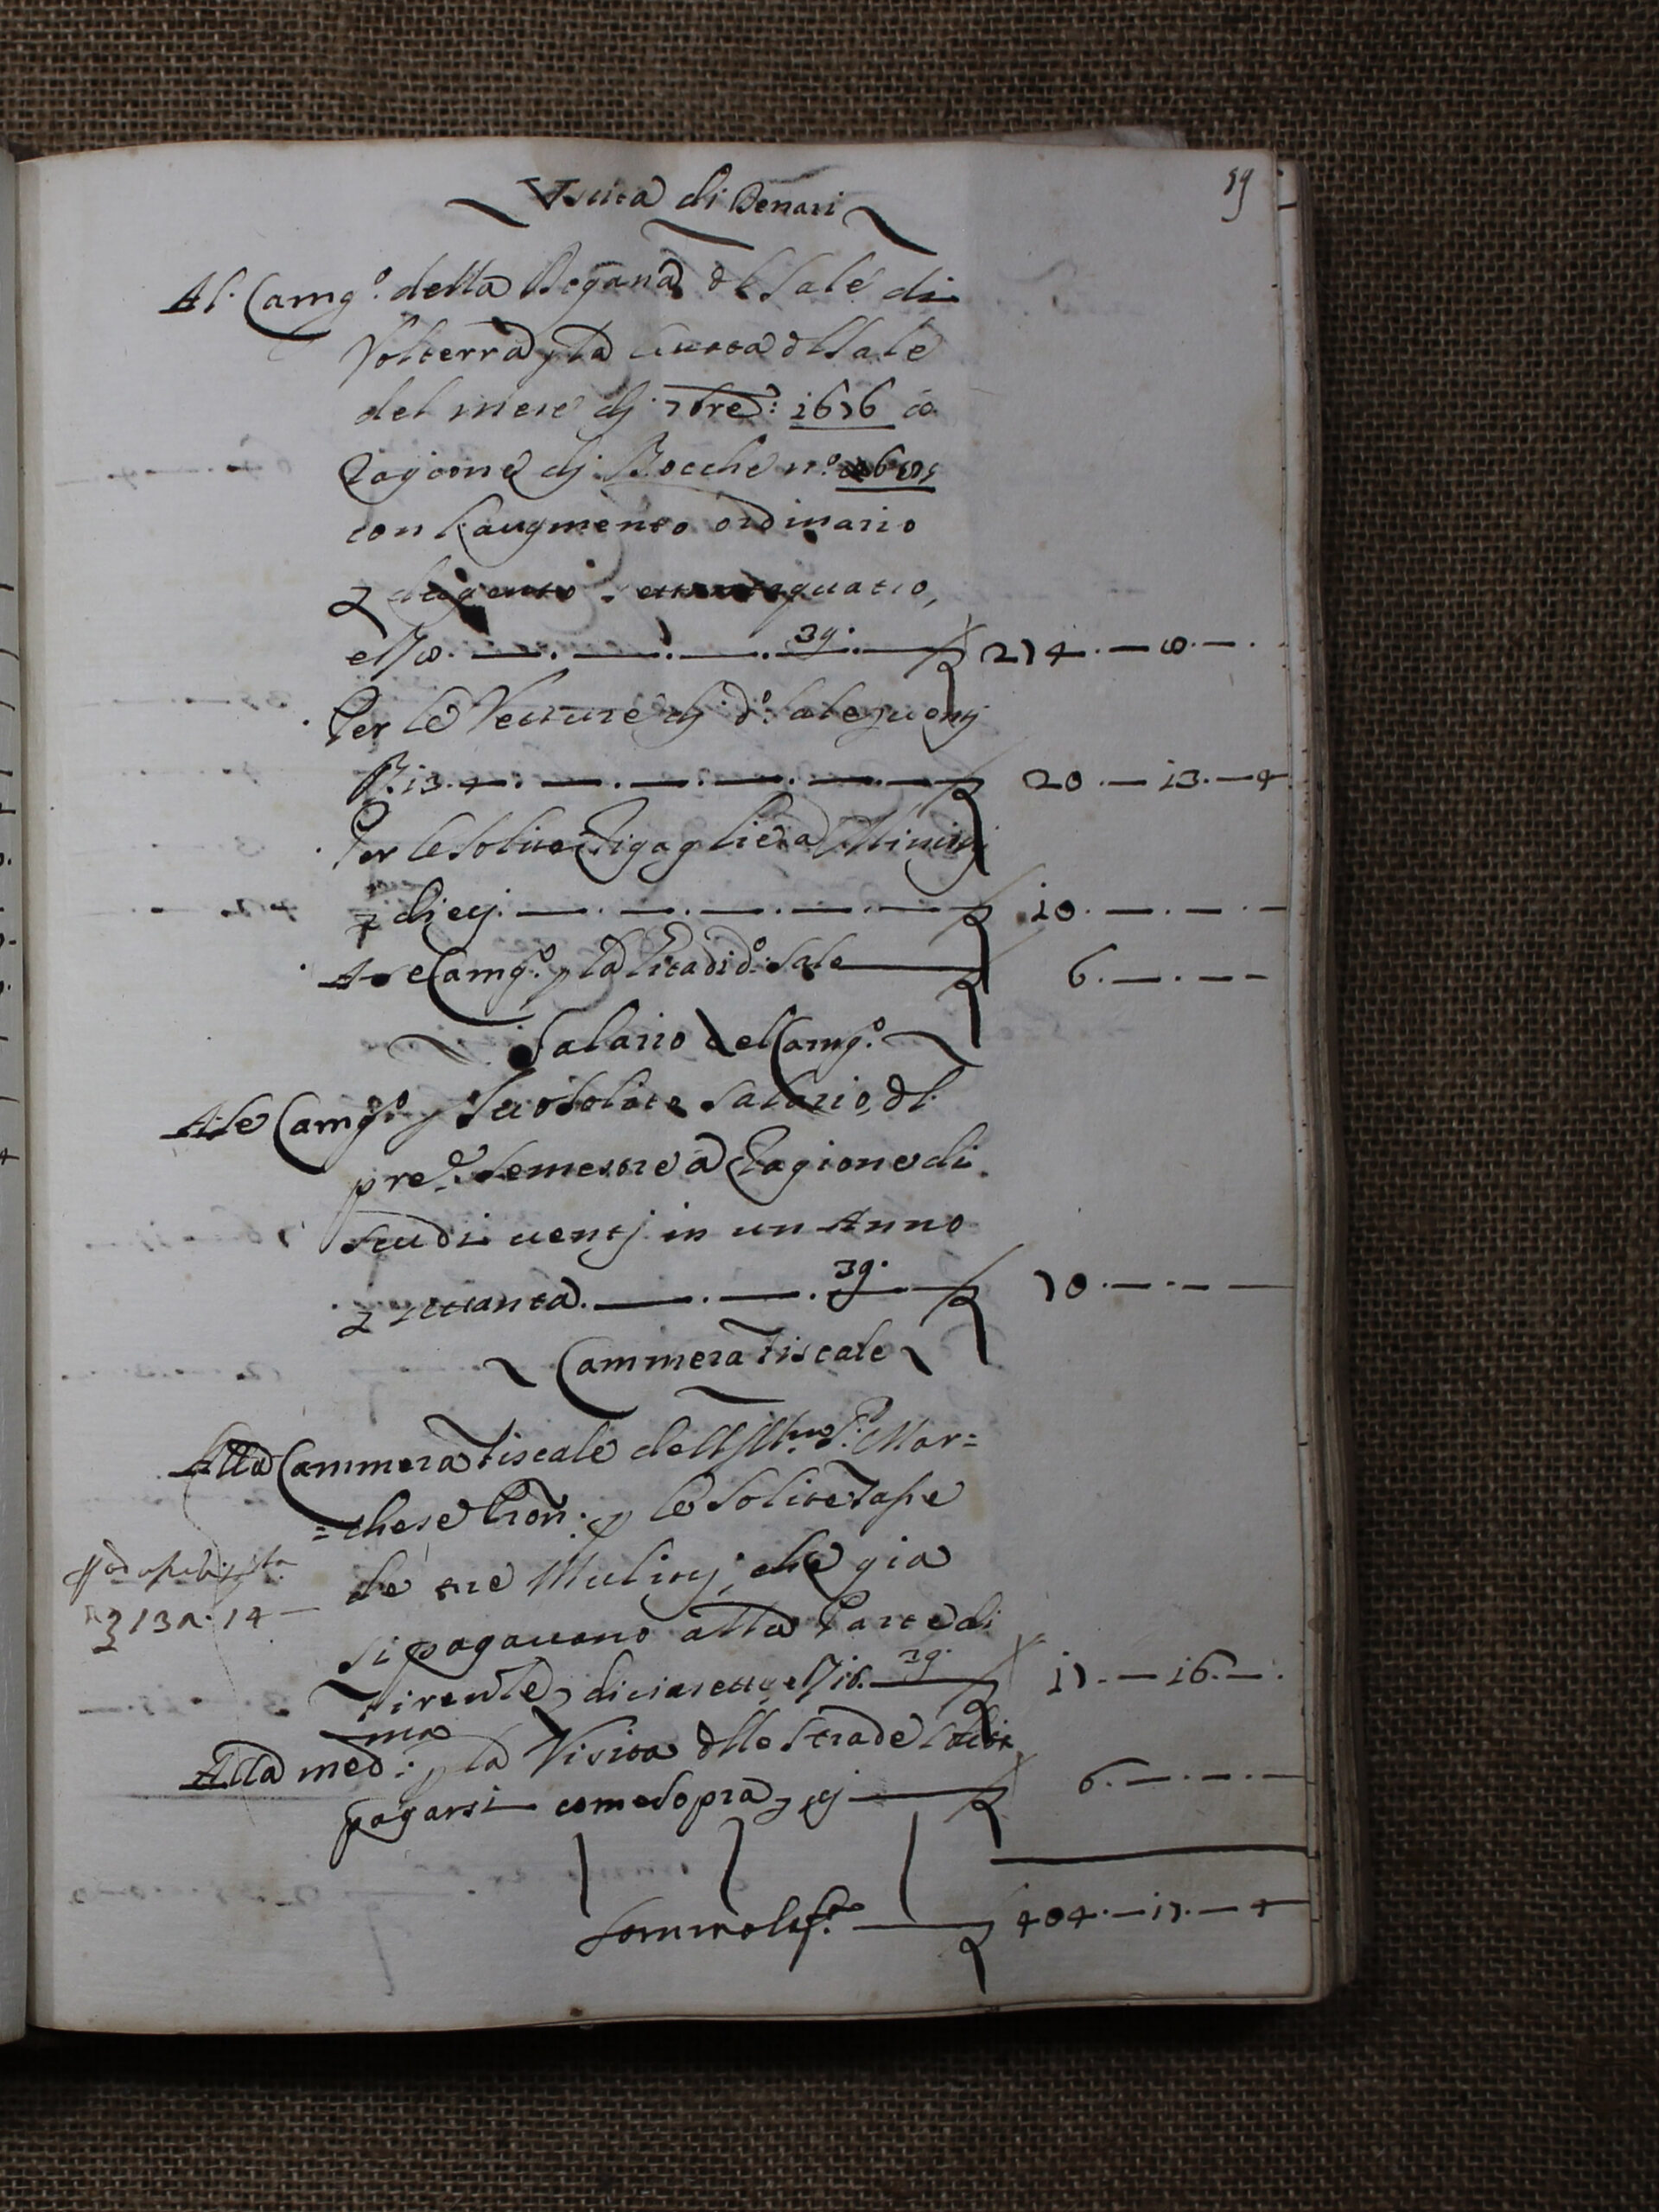 Uscita di Denari
59
Al Camg.º della Dogana dl Sale di
Volterra p la leuata dl Sale
del mese di 7bre: 1676 à
Ragione di Bocche n.º
con l'augmento ordinario
quatro,
e /8. 39. 274.—8.—.
Per le Vetture di d.º Sale uenti
/13.4. 20.—13.—4
Per le solite Rigaglie a Ministri
dieci. 10.—.—.—
Al Camg.º p la Gita di d.º Sale 6.—.——
Salario del Camg.º
Al Camg.º p Suo solito Salario, dl
pre.te Semestre à Ragione di
scudi uenti in un Anno
settanta. 39. 70.—.——
Cammera Fiscale
Alla Cammera Fiscale dell Ill.mo S.r Mar=
=chese Pron: p le solite Tasse
de tre Mulini, che gia
si pagauono alla Parte di
Firenze, diciasette e /16. 39. 17.—16.—.
313 14—
Alla med:ma p la Visita dlle Strade solita
pagarsi come sopra, sei 6.—.—.—
Somma 404.—17.—4